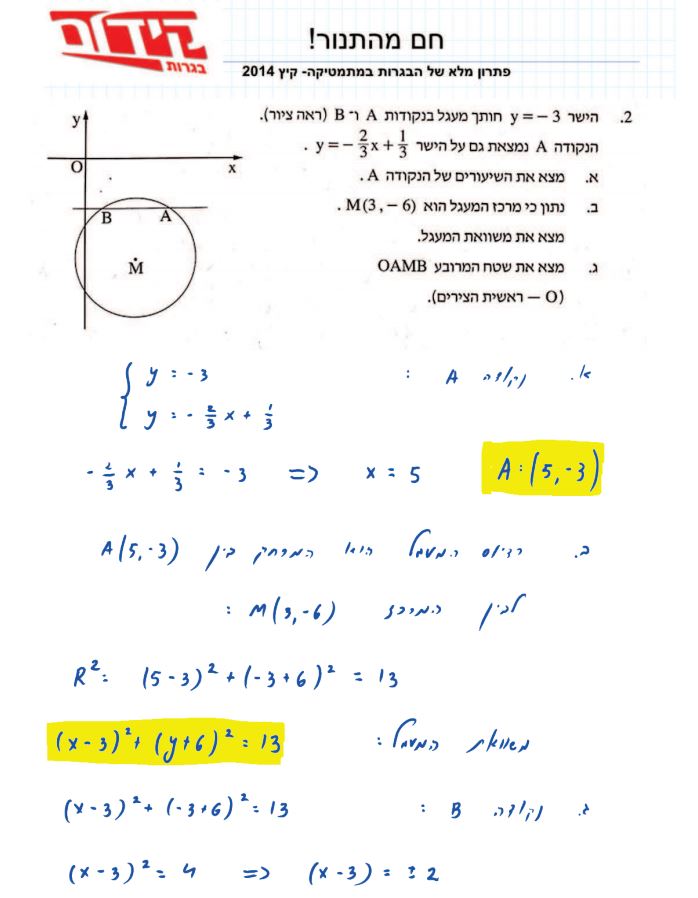 קידום
בגרות
חם מהתנור!
פתרון מלא של הבגרות במתמטיקה- קיץ 2014
2. הישר y = − 3 חותך מעגל בנקודות A ו־ B (ראה ציור).
הנקודה A נמצאת גם על הישר y = − 2/3 x + 1/3 .
א. מצא את השיעורים של הנקודה A .
ב. נתון כי מרכז המעגל הוא M(3, − 6) .
מצא את משוואת המעגל.
ג. מצא את שטח המרובע OAMB
(O — ראשית הצירים).
y
O
x
B
A
M
א. נקודה A :
y = -3
y = - 2/3 x + 1/3
- 2/3 x + 1/3 = -3 => x = 5 A:(5,-3)
ב. רדיוס המעגל הוא המרחק בין A(5,-3)
לבין המרכז M(3,-6) :
R²= (5-3)² + (-3+6)² = 13
משוואת המעגל: (x-3)² + (y+6)² = 13
ג. נקודה B : (x-3)² + (-3+6)² = 13
(x-3)² = 4 => (x-3) = ±2